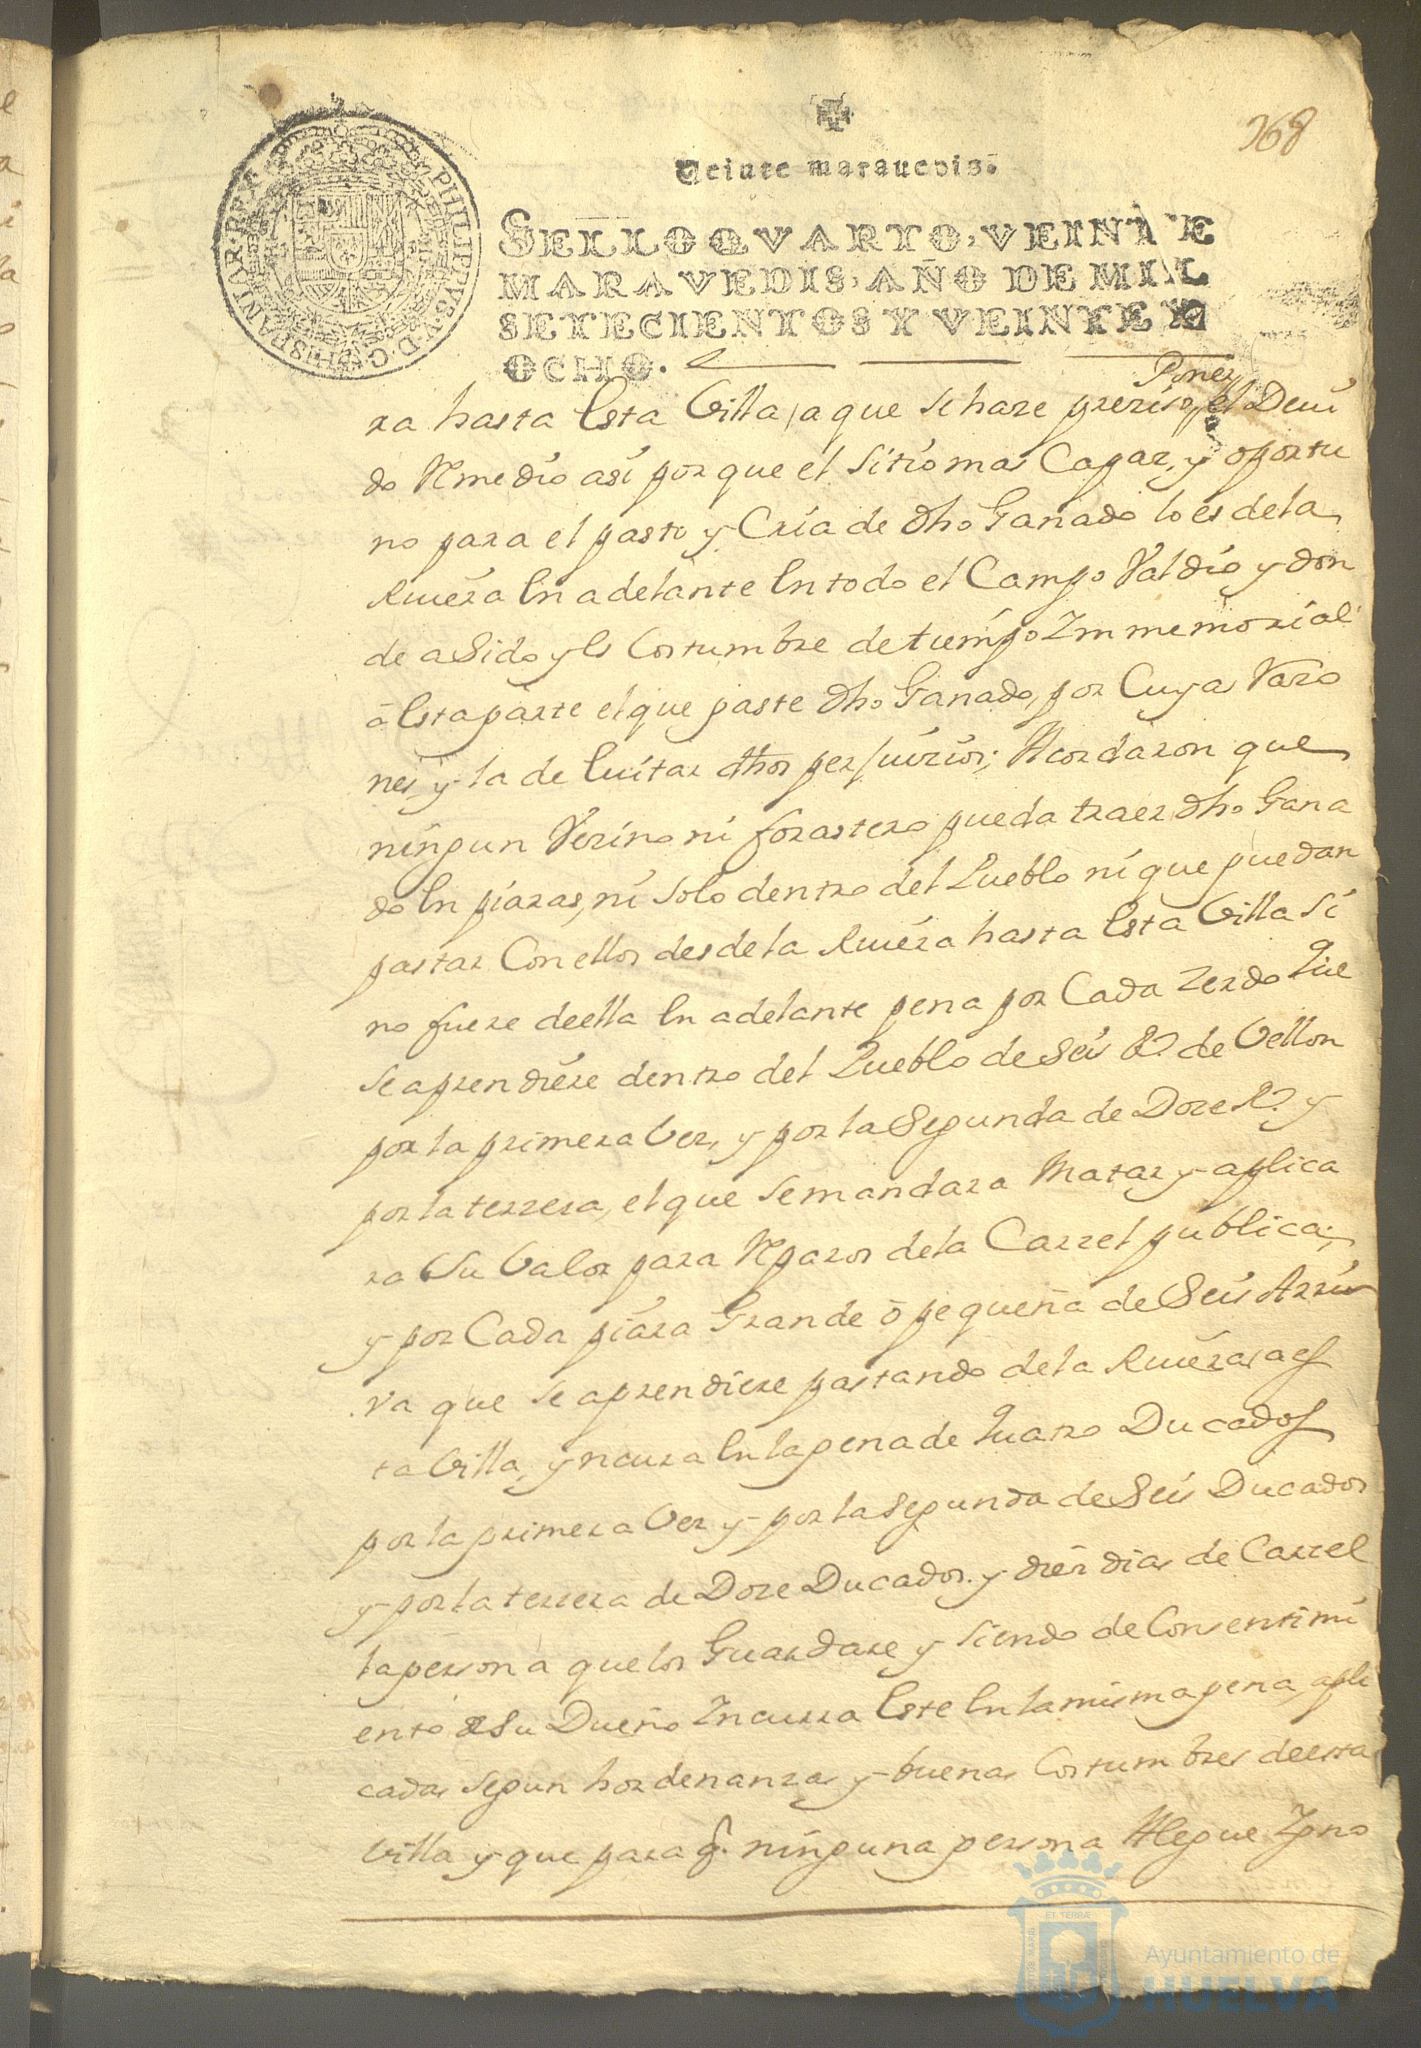 368
Veinte marauedis.
SELLO QVARTO, VEINTE
MARAVEDIS, AÑO DE MIL
SETECIENTOS Y VEINTE Y
OCHO.
PHILIPPVS V D G HISPANIAR REX
Poner
ra hasta Esta Villa, a que se haze prezisso, el Deui
do Remedio asi por que el sitio mas Capaz, y oportu
no para el pasto y Cria de dho Ganado lo es de la
Riuera En adelante En todo el Campo Valdio y don
de a Sido y Es Costumbre de tiempo Immemorial
â Esta parte el que paste dho Ganado, por Cuyas Razo
nes, y la de Euitar dhos perjuicios; Acordaron que
ningun Vezino ni forastero pueda traer dho Gana
do En piaras, ni solo dentro del Pueblo ni que puedan
pastar Con ellos desde la Riuera hasta Esta Villa si
no fuere de ella En adelante pena por Cada Zerdo Que
se aprendiere dentro del Pueblo de Seis Rs de Vellon
por la primera Vez, y por la Segunda de Doze Rs y
por la terzera, el que se mandara Matar y aplica
ra Su Valor para Reparos de la Carzel publica;
y por Cada piara Grande ô pequeña de Seis Arriu
va que se aprendiere pastando de la Riuera a es
ta Villa, yncurra En la pena de Quatro Ducados
por la primera Vez y por la segunda de Seis Ducados
y por la terzera de Doze Ducados y diez dias de Carzel
la persona que los Guardare y siendo de Consentimi
ento de Su Dueño Incurra Este En la misma pena, apli
cadas segun hordenanzas y buenas Costumbres de esta
Villa y que para q. ninguna persona Allegue Igno
Ayuntamiento de
HUELVA